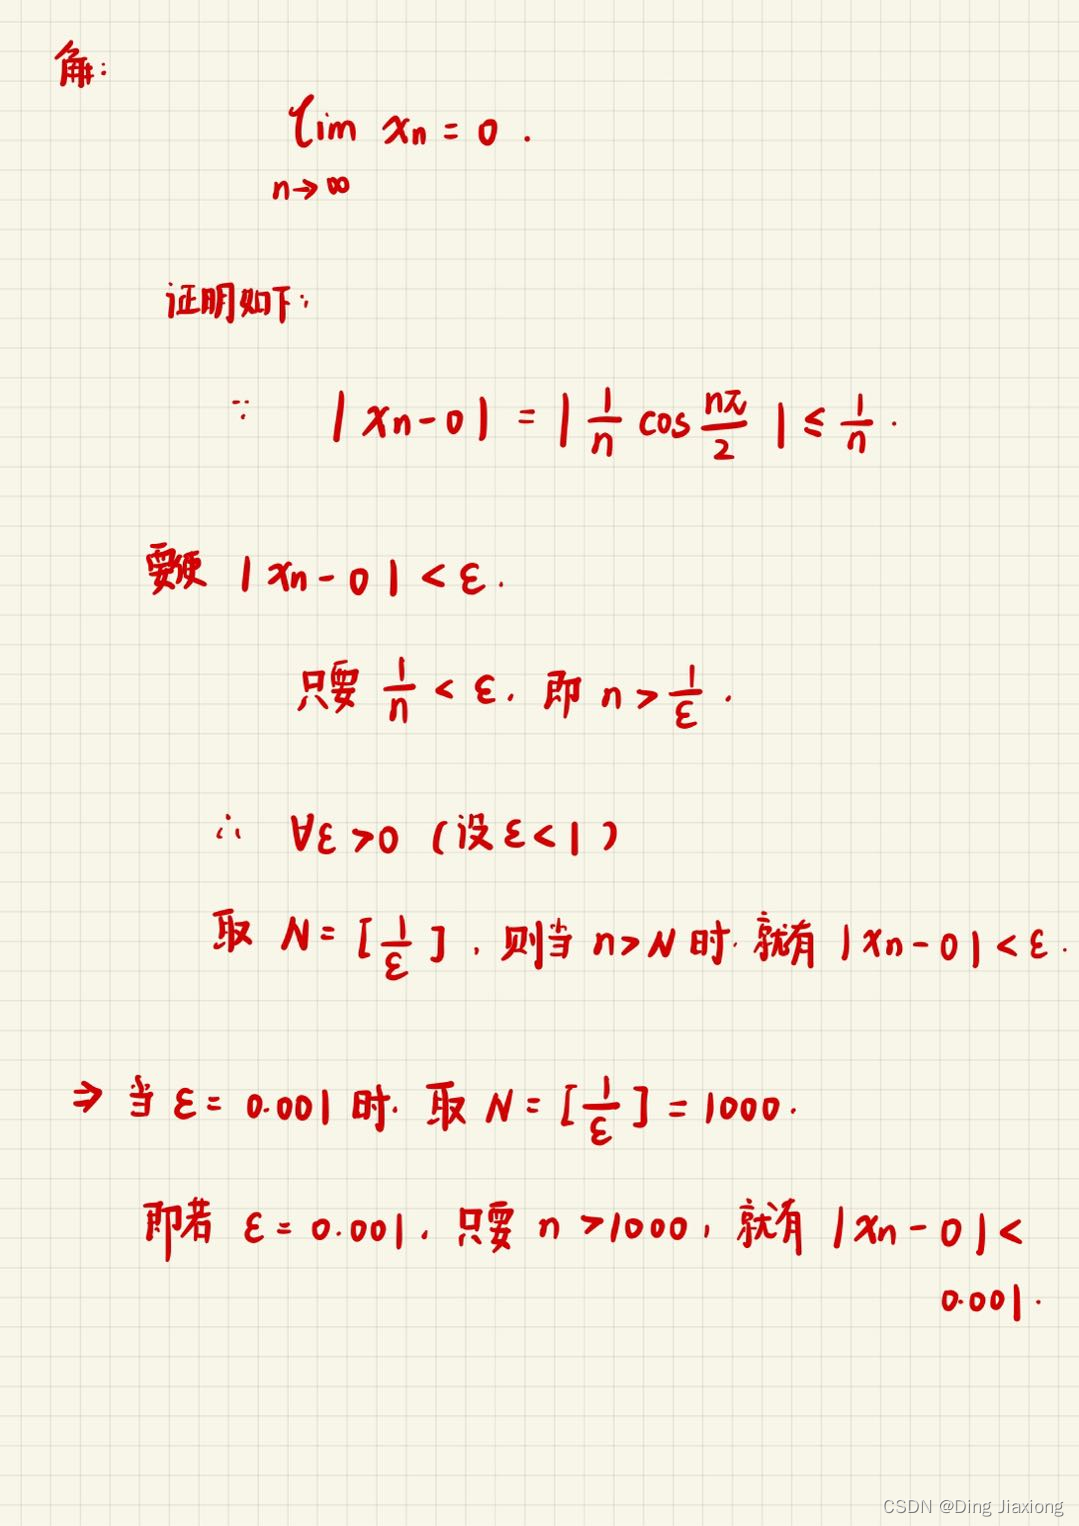 解:
lim xn = 0 .
n→∞
证明如下:
∵ |xn-0| = |1/n cos nπ/2| ≤ 1/n .
要使 |xn-0| < ε .
只要 1/n < ε . 即 n > 1/ε .
∴ ∀ε>0 (设 ε<1)
取 N = [1/ε] , 则当 n>N 时. 就有 |xn-0| < ε .
⇒ 当 ε = 0.001 时. 取 N = [1/ε] = 1000 .
即若 ε = 0.001 . 只要 n >1000 , 就有 |xn-0| <
0.001 .
CSDN @Ding Jiaxiong